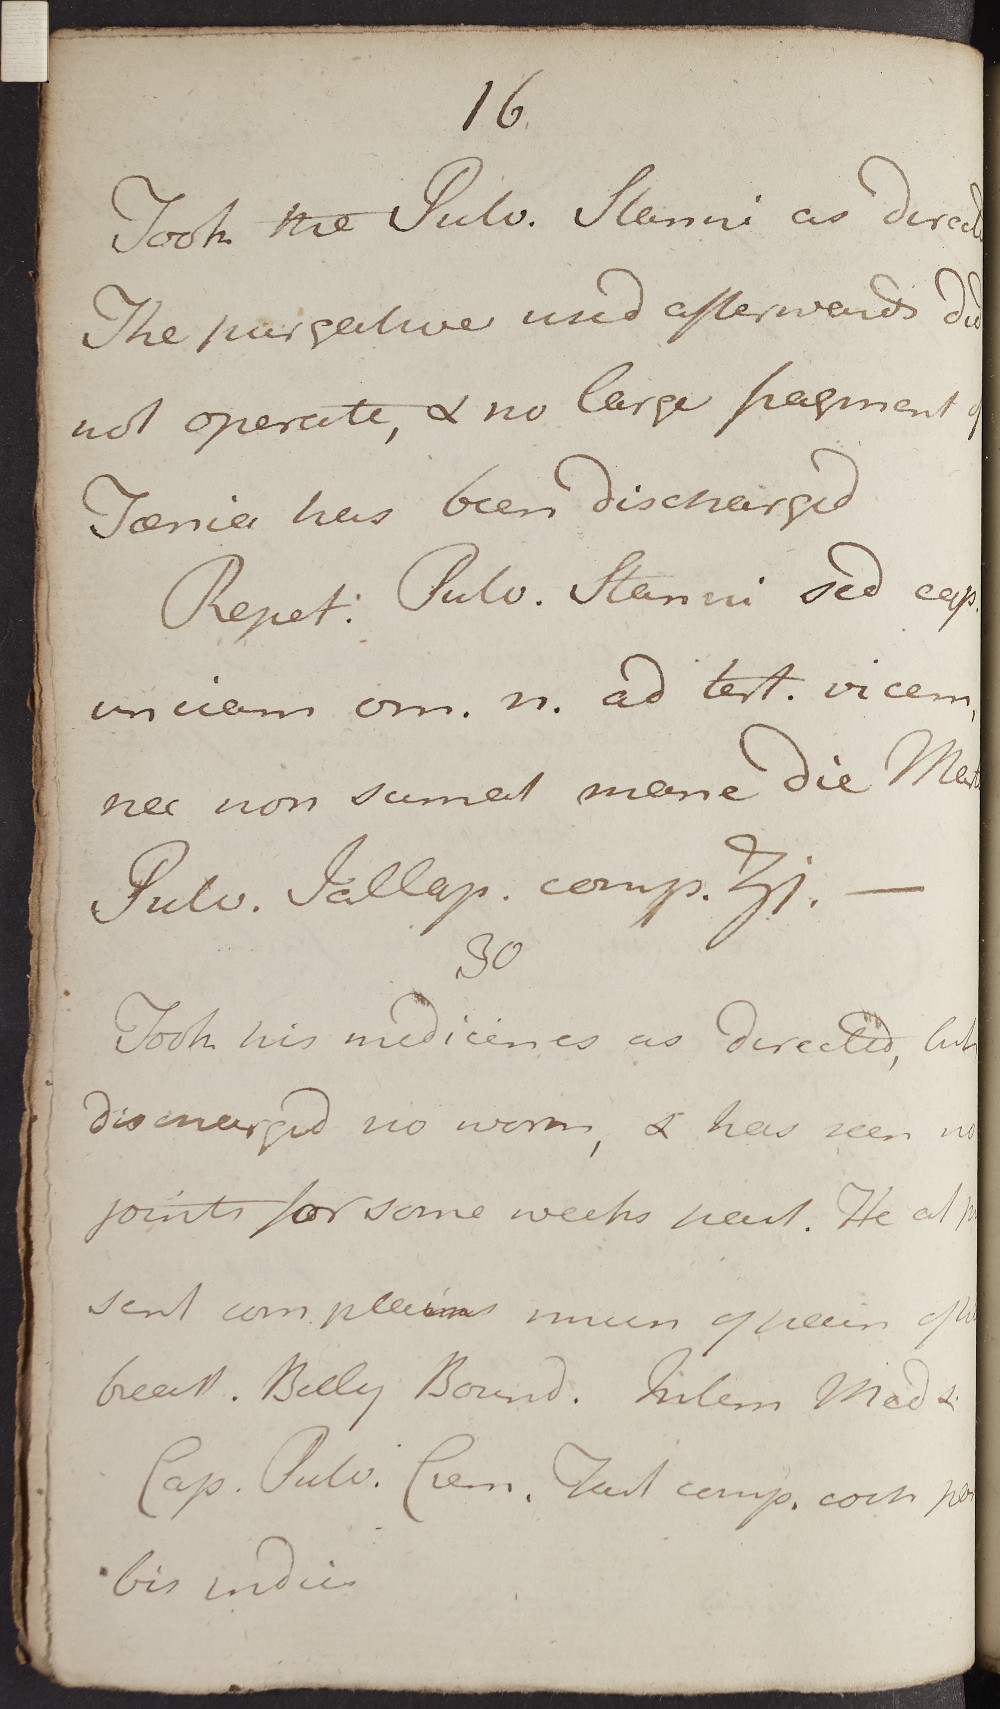 16
Took the Pulv. Stanni as direct
The purgative used afterwards did
not operate, & no large fragment of
Tænia has been discharged
Repet: Pulv. Stanni sed cap.
unciam om. n. ad tert. vicem,
nec non sumat mane die Mart
Pulv. Jallap. comp. ʒj. —
30
Took his medicines as directed, but
discharged no worm, & has seen no
joints for some weeks past. He at pre
sent complains much of pain of his
breast. Belly Bound. Intem Med
Cap. Pulv. Crem. Tart comp. coch par
bis indies